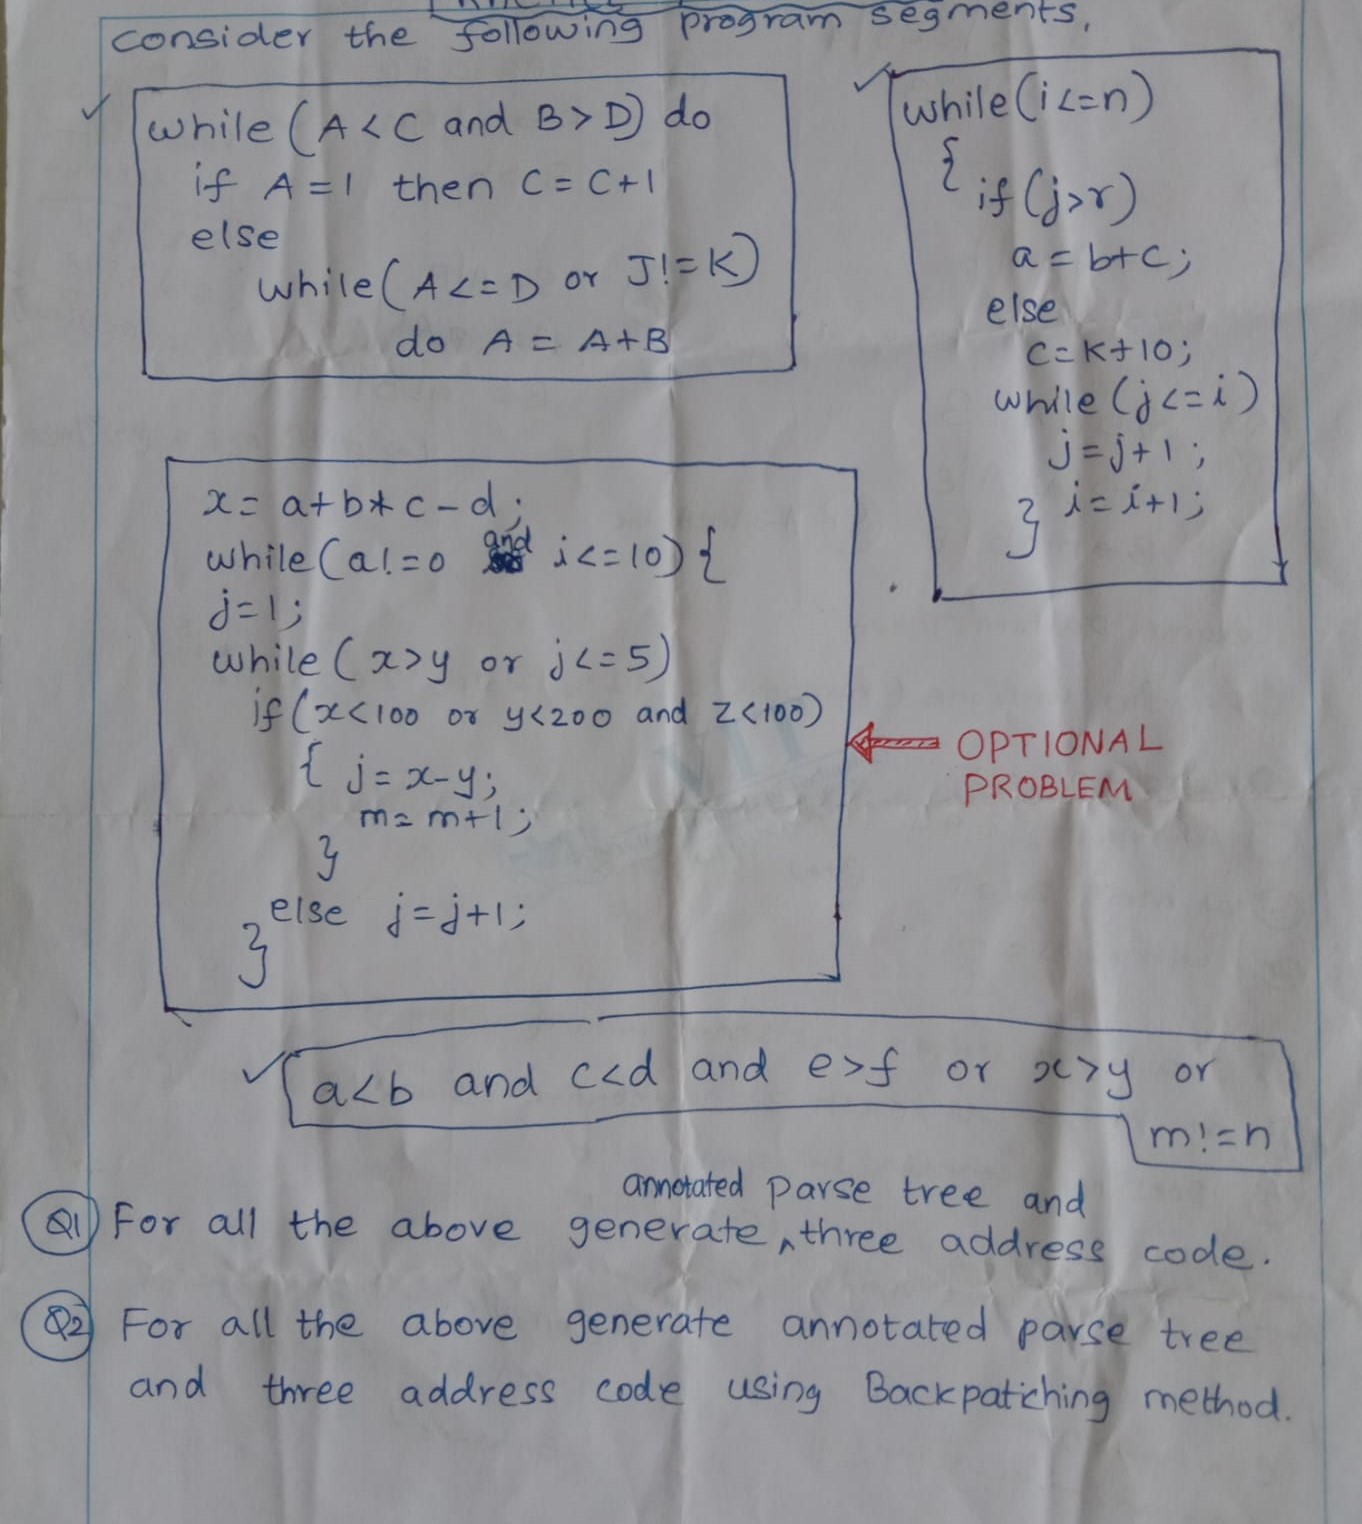 consider the following program segments,
while (A<C and B>D) do
if A=1 then C=C+1
else
while (A<=D or J!=K)
do A = A+B
while(i<=n)
{ if (j>r)
a = b+c;
else
c=k+10;
while (j<=i)
j=j+1;
} i=i+1;
x= a+b*c-d;
while (a!=0 and i<=10) {
j=1;
while (x>y or j<=5)
if (x<100 or y<200 and z<100)
{ j=x-y;
m=m+1;
}
else j=j+1;
}
OPTIONAL
PROBLEM
a<b and c<d and e>f or x>y or
m!=n
Q1 For all the above generate annotated parse tree and
three address code.
Q2 For all the above generate annotated parse tree
and three address code using Backpatiching method.